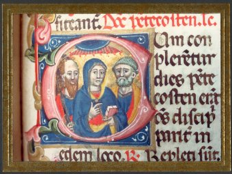 ficeant. Die pētecosten. lc.
Cum con
plerētur
dies pēte
costen erāt
oēs discip
pariť in
eodem loco. R. Repleti sūt.